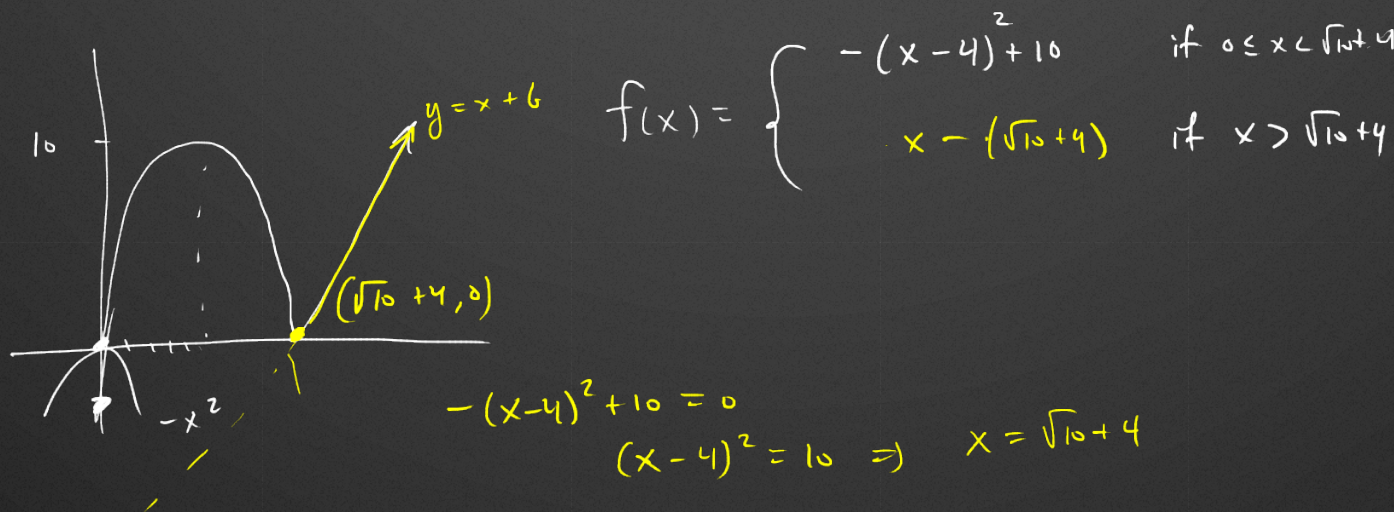 10
y = x + 6
f(x) = {
-(x-4)² + 10 if 0 ≤ x < √10 + 4
x - (√10 + 4) if x > √10 + 4
(√10 + 4, 0)
-x²
-(x-4)² + 10 = 0
(x-4)² = 10 ⇒ x = √10 + 4